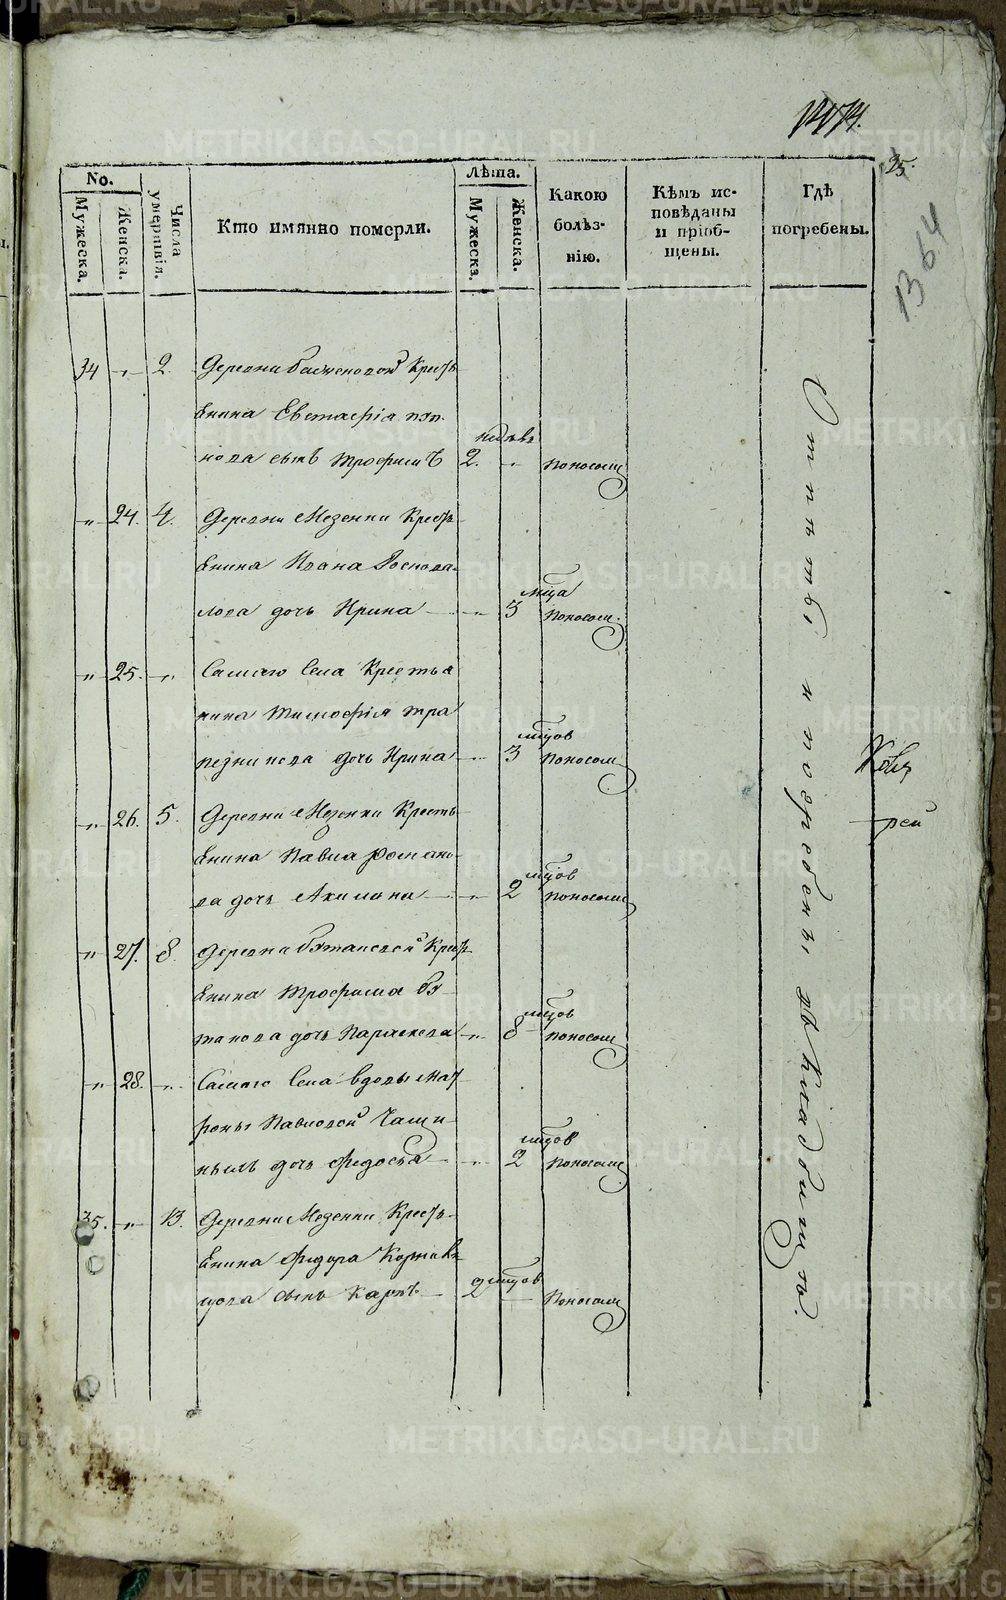 METRIKI.GASO-URAL.RU
25.
В 64
No.
Мужеска.
Женска.
Числа умертвія.
Кто имянно померли.
Лѣта.
Мужеска.
Женска.
Какою болѣз-
нію.
Кѣмъ ис-
повѣданы
и пріоб-
щены.
Гдѣ
погребены.
34 -„- 2. Деревни Баженовой Кресть
янина Евстафія
нова сынъ Трофимъ 2. недѣль -„- поносомъ
-„- 24. 4. Деревни Мезенки Кресть
янина Ивана
лова дочь Ирина -„- 3 мца поносомъ.
-„- 25. -„- Самаго Села Крестья
нина Тимофія Тра
пезникова дочь Ирина -„- 3 мцов поносом
-„- 26. 5. Деревни Мезенки Кресть
янина Павла Романо
ва дочь Акилина -„- 2 мцов поносомъ
-„- 27. 8. Деревни Ботановой Кресть
янина Трофима Бо
танова дочь Параскева -„- 8 мцов поносомъ
-„- 28. -„- Самаго Села вдовы Мат
роны Павловой Чащи
ныхъ дочь Федосья -„- 2 мцов поносомъ
35. -„- 13. Деревни Мезенки Кресть
янина Федора Коржав
цова сынъ Карпъ 2 мцов поносомъ
Отпѣты и погребены на кладбищѣ.
рей